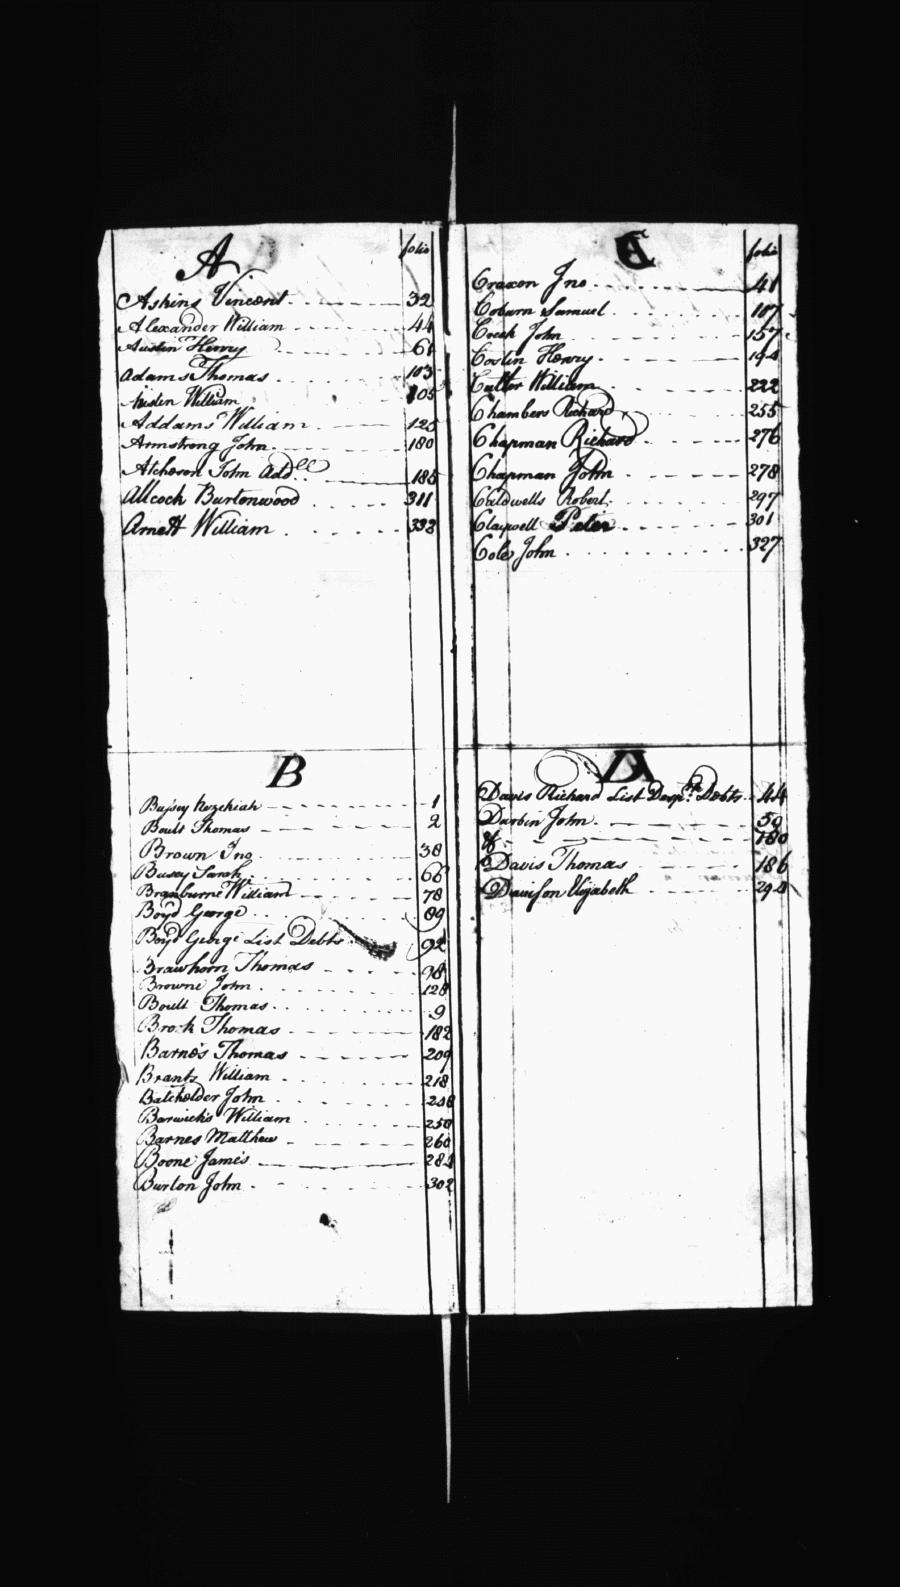 A folio
Askins Vincent 32
Alexander William 44
Austin Henry 61
Adams Thomas 103
Austin William 105
Addams William 125
Armstrong John 180
Atcheson John Add.ll 185
Allcock Burtonwood 311
Arnett William 332
B
Bussey Hezekiah 1
Boult Thomas 2
Brown Jno 38
Bussey Sarah 66
Branburne William 78
Boyd George 89
Boyd George List Debts 92
Brawhorn Thomas 98
Browne John 128
Boult Thomas 9
Brock Thomas 182
Barnes Thomas 209
Brants William 218
Batchelder John
Barwicks William 250
Barnes Matthew 260
Boone James 282
Burton John 302
C folio
Craxon Jno 41
Coburn Samuel 107
Cock John 157
Costin Henry 194
Cutler William 222
Chambers Richard 255
Chapman Richard 276
Chapman John 278
Caldwells Robert 297
Claywell Peter 301
Cole John 327
D
Davis Richard List Desp.te Debts 44
Durbin John 59
180
Davis Thomas 186
Davison Elizabeth 294